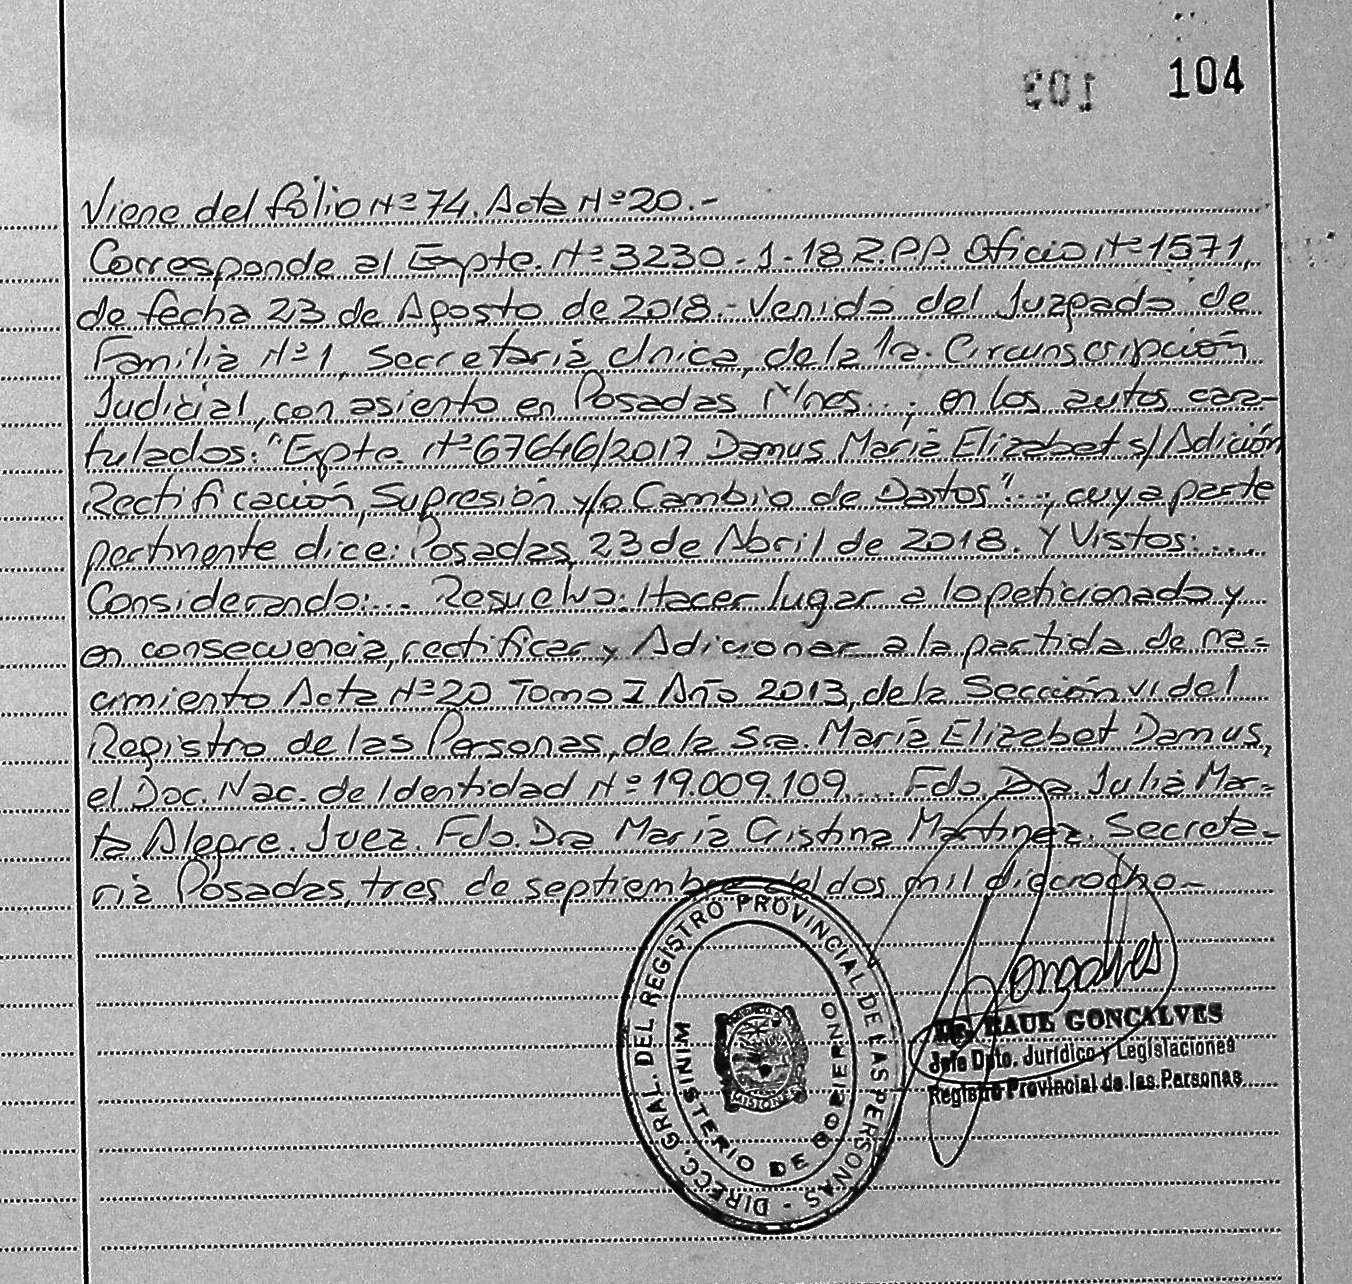 103 104
Viene del folio Nº 74. Acta Nº 20.-
Corresponde al Expte. Nº 3230-1-18 R.P.P. Oficio Nº 1571,
de fecha 23 de Agosto de 2018.- Venido del Juzgado de
Familia Nº 1, Secretaría única, de la 1a. Circunscripción
Judicial, con asiento en Posadas Mnes...; en los autos cara-
tulados: "Expte. Nº 67646/2017 Damus María Elizabet s/Adición
Rectificación, Supresión y/o Cambio de Datos"..., cuya parte
pertinente dice: Posadas, 23 de Abril de 2018. Y Vistos:....
Considerando:... Resuelvo: Hacer lugar a lo peticionado y
en consecuencia, rectificar y Adicionar a la partida de na-
cimiento Acta Nº 20 Tomo I Año 2013, de la Sección VI del
Registro de las Personas, de la Sra. María Elizabet Damus,
el Doc. Nac. de Identidad Nº 19.009.109.... Fdo. Dra. Julia Mar-
ta Alegre. Juez. Fdo. Dra María Cristina Martinez. Secreta-
ria Posadas, tres de septiembre del dos mil dieciocho-
DIRECC. GRAL. DEL REGISTRO PROVINCIAL DE LAS PERSONAS -
MINISTERIO DE GOBIERNO
MISIONES
Goncalves
RAUL GONCALVES
Jefe Dpto. Jurídico y Legislaciones
Registro Provincial de las Personas